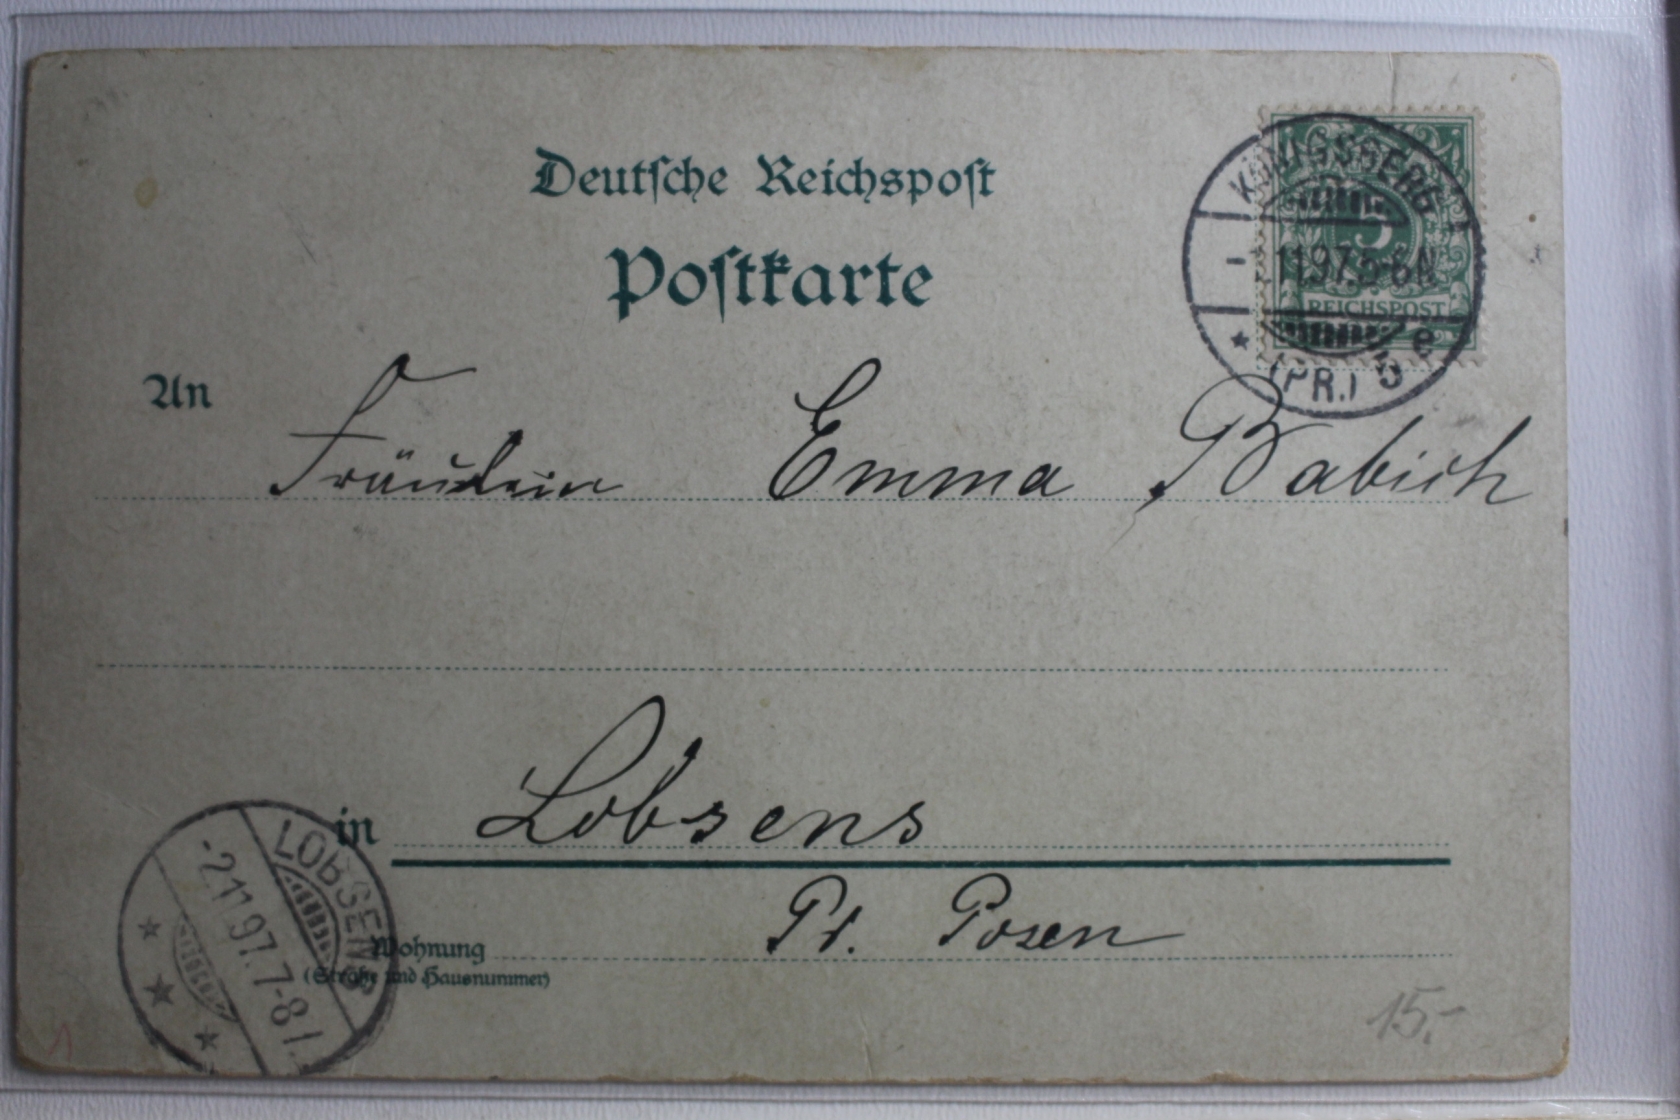 Deutsche Reichspost
Postkarte
KÖNIGSBERG
5
-1.11.97.5-6N
REICHSPOST
* (PR.) 5 e
An
Fräulein Emma Babich
in Lobsens
Pr. Posen
Wohnung
(Straße und Hausnummer)
LOBSENS
-2.11.97.7-8
15,-